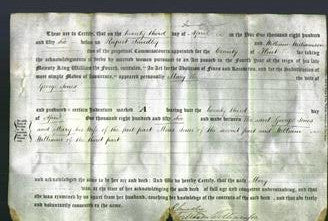 These are to Certify, that on the twenty third day of April in the Year One thousand eight hundred
and fifty six before us Rupert and William Williamson
two of the perpetual Commissioners appointed for the County of Flint for
taking the acknowledgments of deeds by married women pursuant to an Act passed in the Fourth year of the reign of his
late Majesty King William the Fourth, intituled "An Act for the Abolition of Fines and Recoveries, and for the Substitution of
more simple Modes of Assurance," appeared personally Mary the
George Jones
and produced a certain Indenture marked A bearing date the twenty third day
of April One thousand eight hundred and fifty six and made between the said George Jones
and Mary his wife of the first part of the second part and William
Williams of the third part
and acknowledged the same to be her act and deed: And we do hereby Certify, that the said Mary
was, at the time of her acknowledging the said deed, of full age and competent understanding, and that
she was examined by us apart from her husband, touching her knowledge of the contents of the said deed, and that she freely
and voluntarily consented to the same.